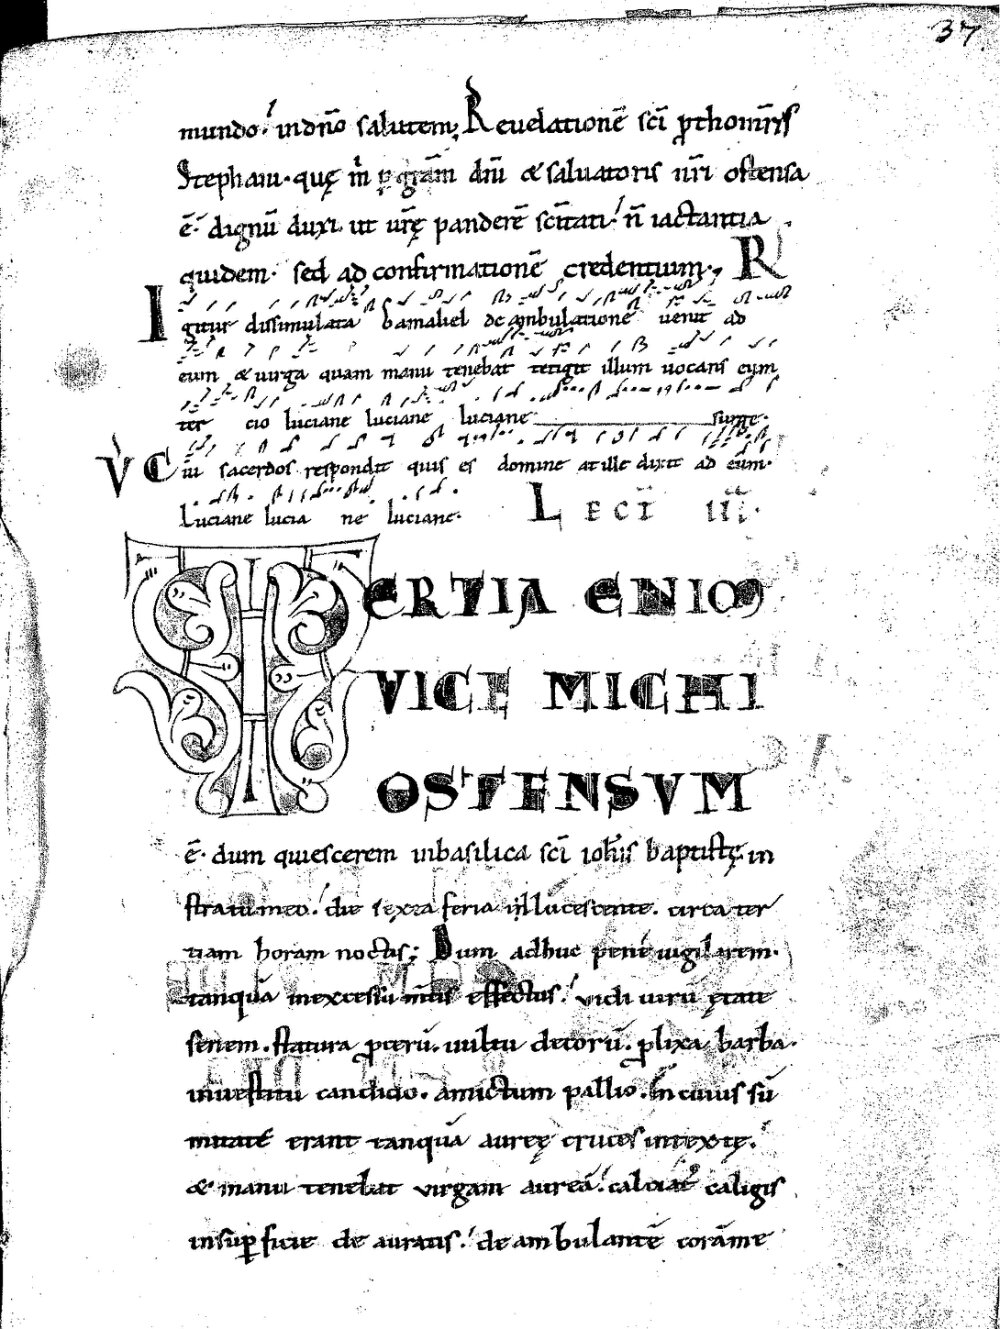 37
mundo. indño salutem; Reuelationē sc̄i ꝓthomr̄is
Stephani. quę m̄ ꝑ gr̄am dn̄i & saluatoris nr̄i ostensa
ē. dignū duxi ut ur̄ę panderē sc̄itati. n̄ iactantia
quidem. sed ad confirmationē credentium; R
Igitur dissimulata Gamaliel deambulatione uenit ad
eum & uirga quam manu tenebat tetigit illum uocans eum
ter cio luciane luciane luciane surge.
V Cui sacerdos respondit quis es domine at ille dixit ad eum.
Luciane lucia ne luciane. LECT III.
TERTIA ENIM
VICE MICHI
OSTENSVM
ē. dum quiescerem inbasilica sc̄i ioh̄is baptistę in
stratu meo. die sexta feria illucescente. circa ter
tiam horam noctis; Dum adhuc pene uigilarem.
tanquā inexcessū m̄tis effectus. uidi uirū ętate
senem. statura ꝓcerū. uultu decorū. ꝓlixa barba.
inuestitu candido. amictum pallio. In cuius sū
mitate erant tanquā aureę cruces intextę.
& manu tenebat virgam aureā. calciat᷒ caligis
insuꝑficie de auratis. deambulantē corāme